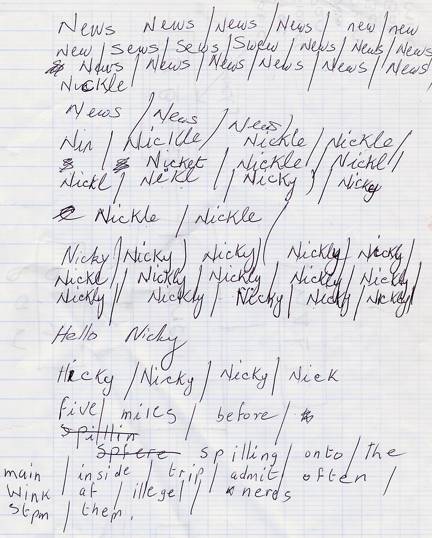 News News / News / News / new / new
New / Sews / Sews / Swew / News / News / News
News / News / News / News / News / News /
Nickle
News / News / News /
Nin / Nickle / Nickle / Nickle /
Nicket / Nickle / Nickl /
Nickl / Nekl / Nicky / Nicky
Nickle / Nickle /
Nicky / Nicky / Nicky / Nickly / Nicky /
Nickl / Nickly / Nickly / Nickly / Nickly /
Nickly / Nickly / Nicky / Nicky / Nickly /
Hello Nicky
Hicky / Nicky / Nicky / Nick
five / miles / before /
Spillin
Sphere spilling / onto / the
main / inside / trip / admit / often /
Wink / at / illegel / nerds
Stpm / them.